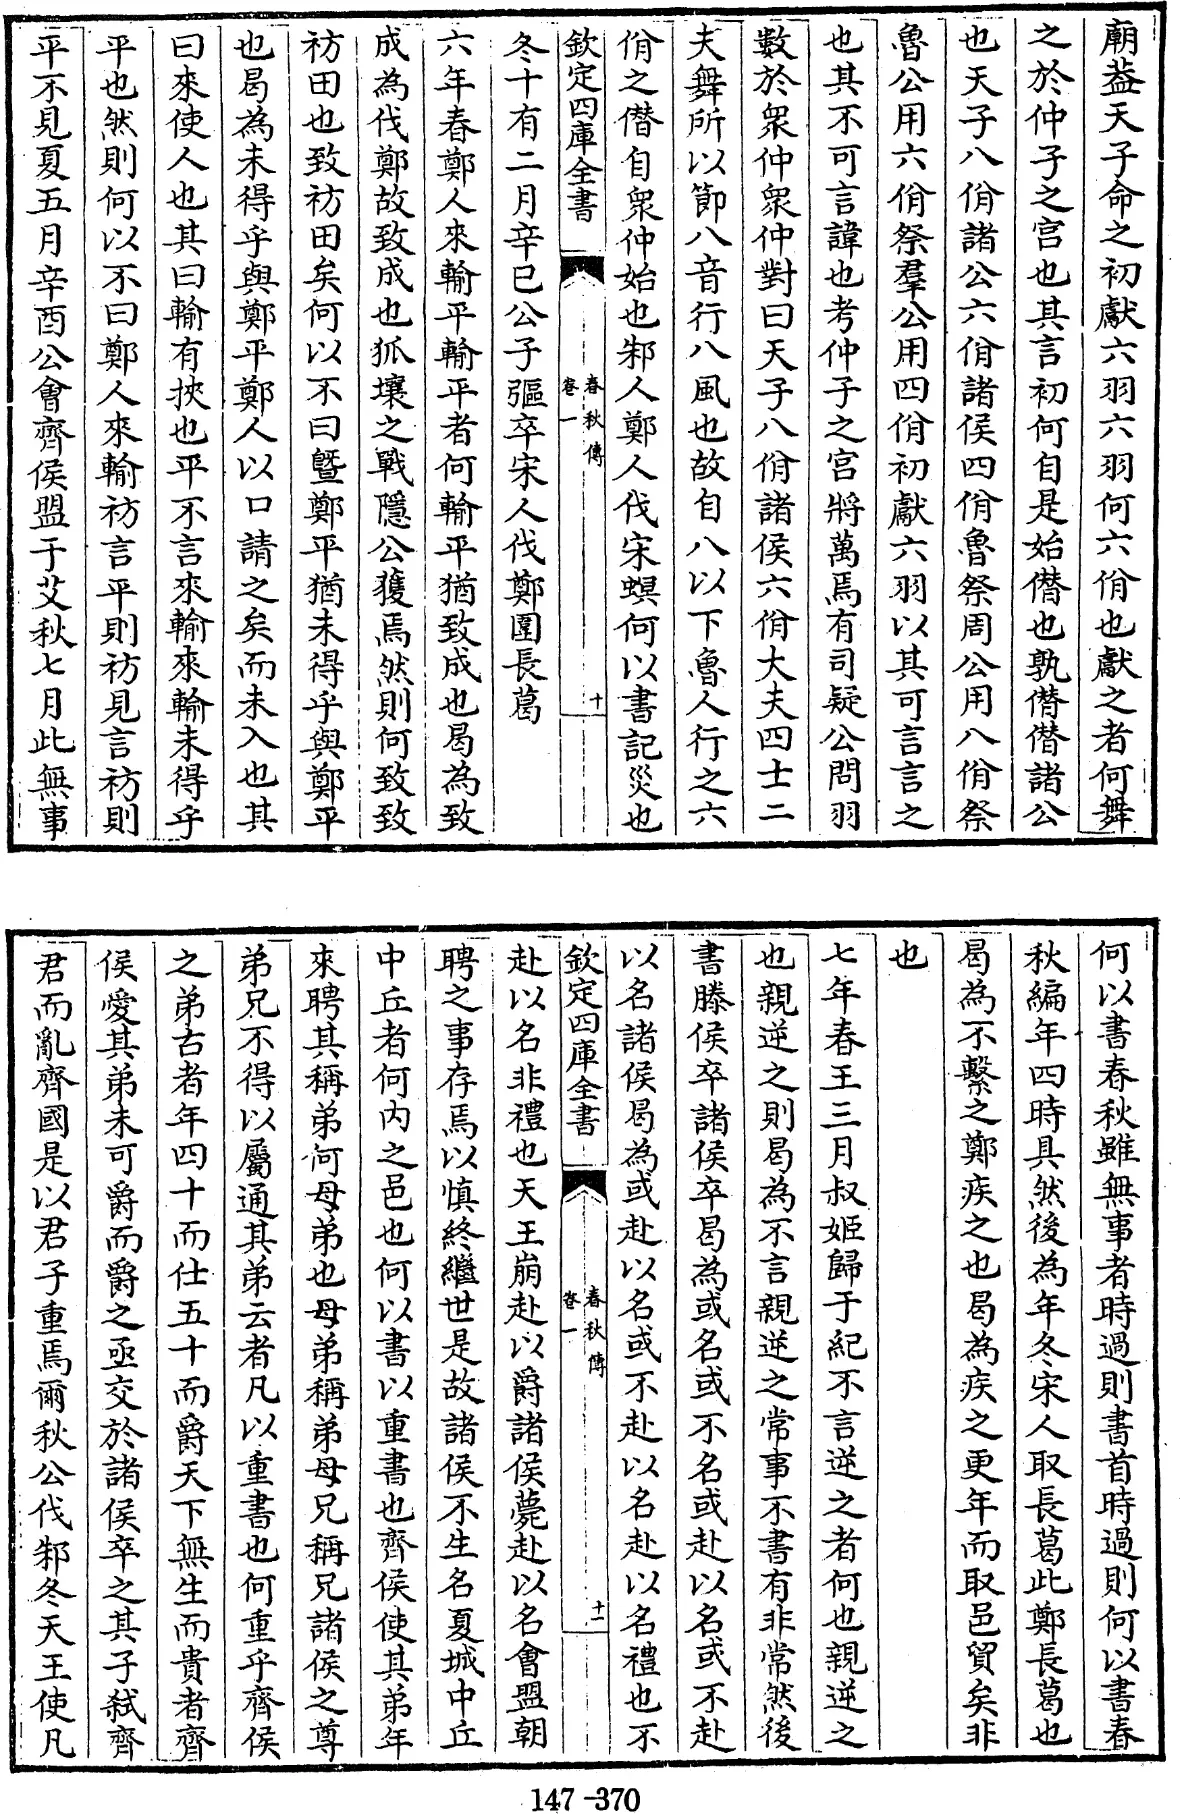 廟葢天子命之初獻六羽六羽何六佾也獻之者何舞
之於仲子之宫也其言初何自是始僣也孰僣僣諸公
也天子八佾諸公六佾諸侯四佾魯祭周公用八佾祭
魯公用六佾祭羣公用四佾初獻六羽以其可言言之
也其不可言諱也考仲子之宫將萬焉有司疑公問羽
數於衆仲衆仲對曰天子八佾諸侯六佾大夫四士二
夫舞所以節八音行八風也故自八以下魯人行之六
佾之僣自衆仲始也邾人鄭人伐宋螟何以書記災也
欽定四庫全書 春秋傳 卷一 十
冬十有二月辛巳公子彄卒宋人伐鄭圍長葛
六年春鄭人來輸平輸平者何輸平猶致成也曷為致
成為伐鄭故致成也狐壤之戰隱公獲焉然則何致致
祊田也致祊田矣何以不曰曁鄭平猶未得乎與鄭平
也曷為未得乎與鄭平鄭人以口請之矣而未入也其
曰來使人也其曰輸有挾也平不言來輸來輸未得乎
平也然則何以不曰鄭人來輸祊言平則祊見言祊則
平不見夏五月辛酉公會齊侯盟于艾秋七月此無事
何以書春秋雖無事者時過則書首時過則何以書春
秋編年四時具然後為年冬宋人取長葛此鄭長葛也
曷為不繫之鄭疾之也曷為疾之更年而取邑貿矣非
也
七年春王三月叔姬歸于紀不言逆之者何也親逆之
也親逆之則曷為不言親逆之常事不書有非常然後
書滕侯卒諸侯卒曷為或名或不名或赴以名或不赴
以名諸侯曷為或赴以名或不赴以名赴以名禮也不
欽定四庫全書 春秋傳 卷一 十一
赴以名非禮也天王崩赴以爵諸侯薨赴以名會盟朝
聘之事存焉以慎終繼世是故諸侯不生名夏城中丘
中丘者何内之邑也何以書以重書也齊侯使其弟年
來聘其稱弟何母弟也母弟稱弟母兄稱兄諸侯之尊
弟兄不得以屬通其弟云者凡以重書也何重乎齊侯
之弟古者年四十而仕五十而爵天下無生而貴者齊
侯愛其弟未可爵而爵之亟交於諸侯卒之其子弑齊
君而亂齊國是以君子重焉爾秋公伐邾冬天王使凡
147-370